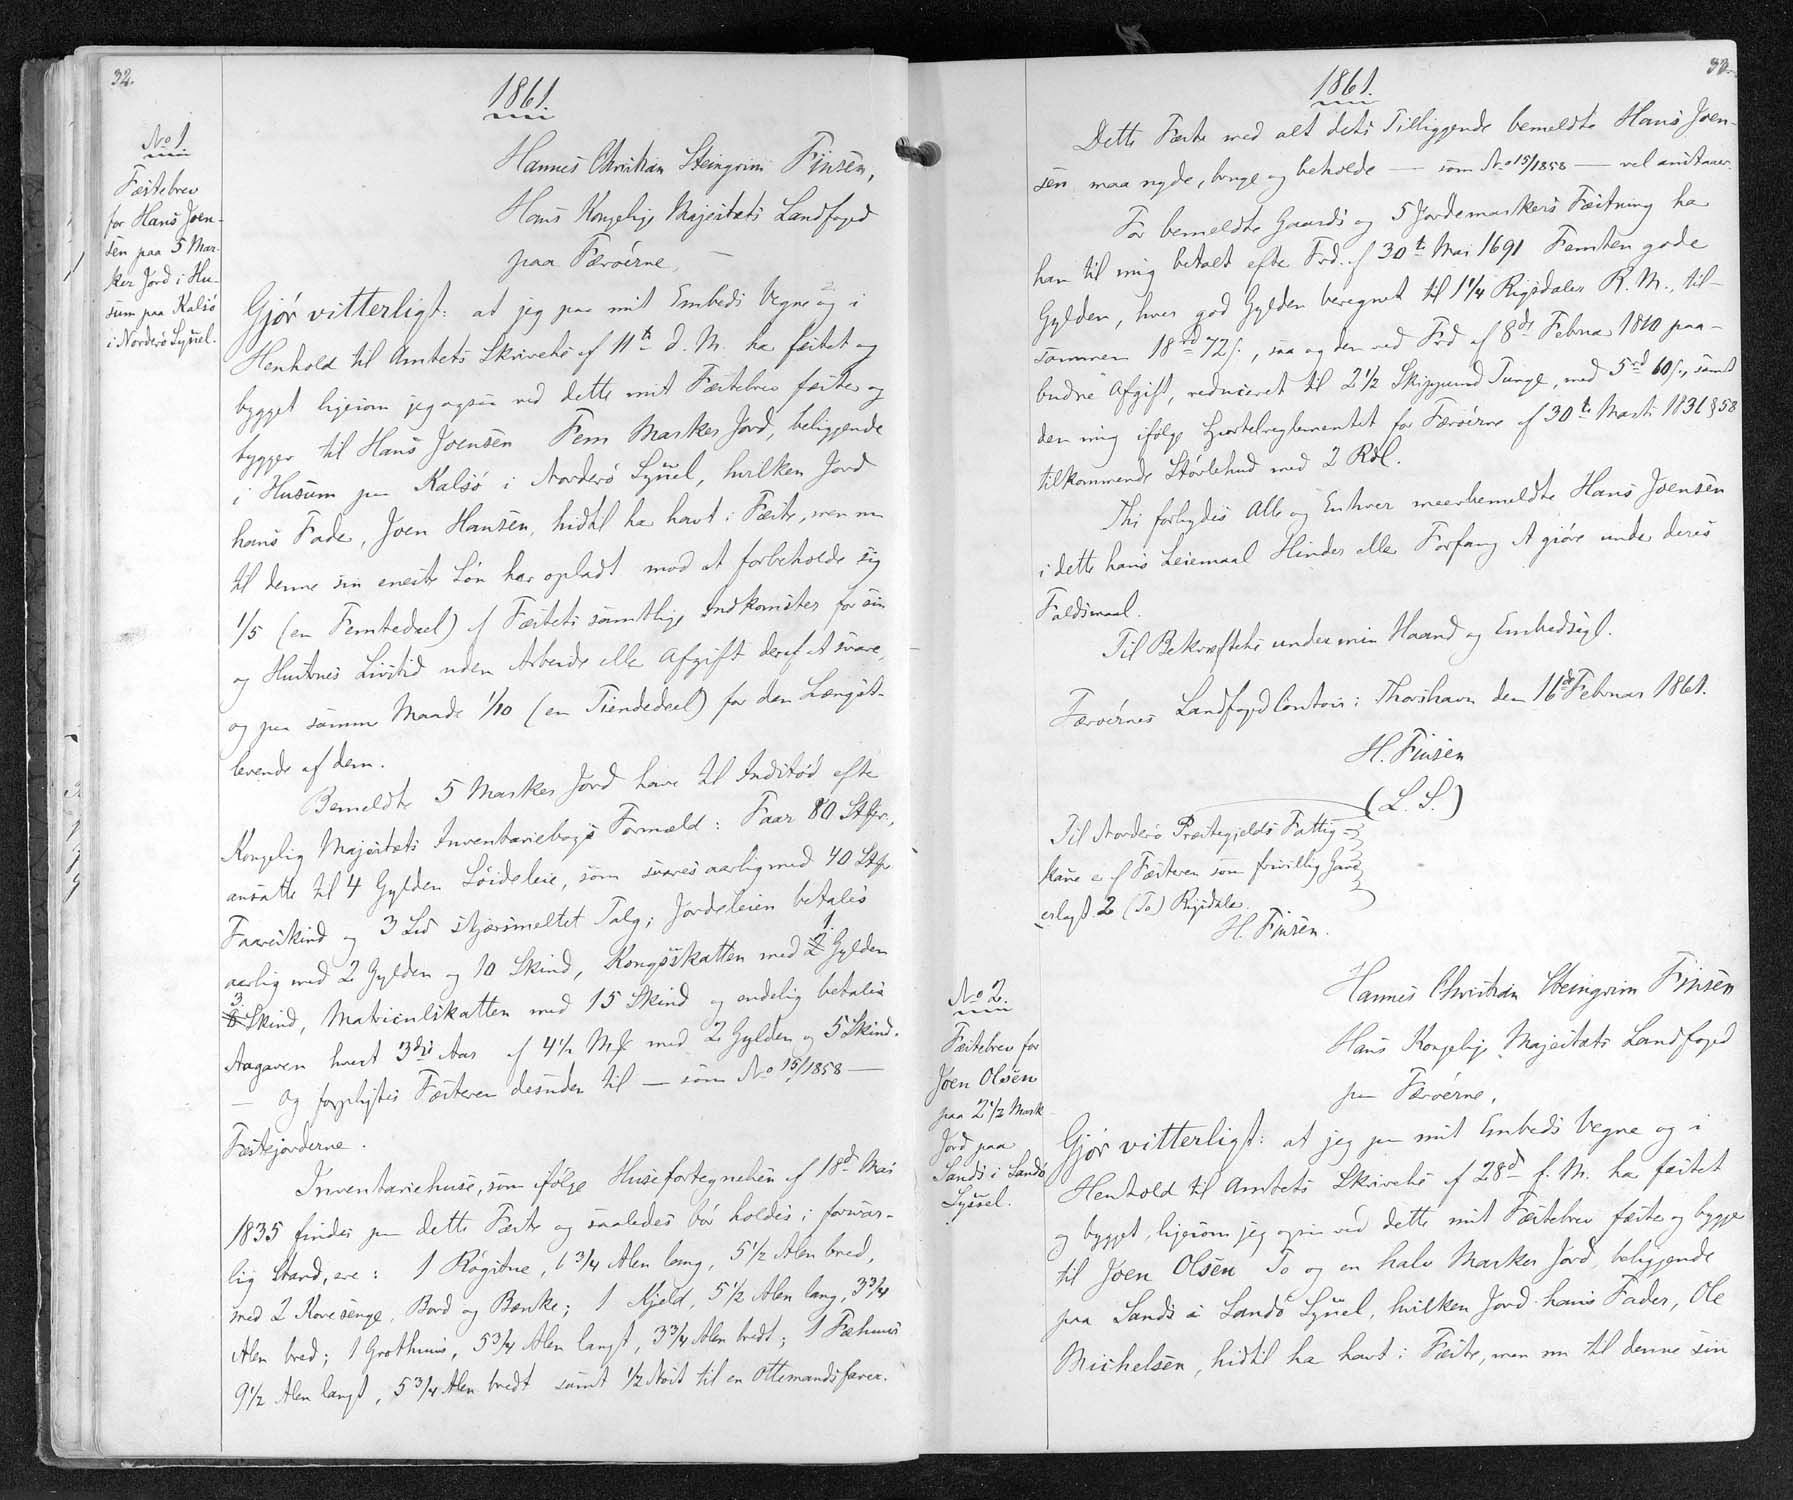 32.
1861.
No 1.
Festebrev
for Hans Joen-
sen paa 5 Mar-
ker Jord i Hu-
sum paa Kalsö
i Norderö Syssel.
Hannes Christian Steingrim Finsen,
Hans Kongelige Majestæts Landfoged
paa Færöerne,
Gjör vitterligt: at jeg paa mit Embeds Vegne og i
Henhold til Amtets Skrivelse af 11te d. M. har fæstet og
bygget ligesom jeg ogsaa ved dette mit Festebrev fæster og
bygger til Hans Joensen Fem Marker Jord, beliggende
i Husum paa Kalsö i Norderö Syssel, hvilken Jord
hans Fader, Joen Hansen, hidtil har havt i Fæste, men nu
til denne sin eneste Sön har opladt mod at forbeholde sig
1/5 (en Femtedeel) af Fæstets samtlige Indkomster for sin
og Hustrues Livstid uden Arbeide eller Afgift deraf at svare,
og paa samme Maade 1/10 (en Tiendedeel) for den Længst-
levende af dem.
Bemeldte 5 Marker Jord have til Indstöd efter
Kongelig Majestæts Inventariebogs Formeld: Faar 80 Stkr,
ansatte til 4 Gylden Söideleie, som svares aarlig med 40 Stkr
Faareskind og 3 Lod skjærsmeltet Talg; Jordeleien betales
aarlig med 2 Gylden og 10 Skind, Kongsskatten med 1 Gylden
3 Skind, Matriculskatten med 15 Skind og endelig betales
Aagaven hvert 3die Aar af 4 1/2 Mk med 2 Gylden og 5 Skind.
— Og forpligtes Fæsteren desuden til — som No 15/1858 —
Festejorderne.
Inventariehuse, som ifölge Husefortegnelsen af 18d Mai
1835 findes paa dette Fæste og saaledes bör holdes i forsvar-
lig Stand, ere: 1 Rögstue, 6 3/4 Alen lang, 5 1/2 Alen bred,
med 2 Kovesenge, Bord og Bænke; 1 Kjeld, 5 1/2 Alen lang, 3 3/4
Alen bred; 1 Grothuus, 5 3/4 Alen langt, 3 3/4 Alen bredt; 1 Fæhuus
9 1/2 Alen langt, 5 3/4 Alen bredt samt 1/2 Nöst til en Ottemandsfarer.
33.
1861.
Dette Fæste med alt dets Tilliggende bemeldte Hans Joen-
sen maa nyde, bruge og beholde — som No 15/1858 — vel anstaaer.
For bemeldte Gaards og 5 Jordemarkers Fæstning har
han til mig betalt efter Frd. af 30te Mai 1691 Femten gode
Gylden, hver god Gylden beregnet til 1 1/4 Rigsdaler R. M., til-
sammen 18 rd 72 s., saa og den ved Frd af 8de Februar 1810 paa-
budne Afgift, reduceret til 2 1/2 Skippund Tunge, med 5 rd 60 s., samt
den mig ifölge Sportelreglementet for Færöerne af 30te Marts 1836 § 58
tilkommende Störlehud med 2 Rdl.
Thi forbydes Alle og Enhver meerbemeldte Hans Joensen
i dette hans Leiemaal Hinder eller Forfang at giöre under deres
Faldsmaal.
Til Bekræftelse under min Haand og Embedssegl.
Færöernes Landfoged Contoir i Thorshavn den 16de Februar 1861.
H. Finsen
(L. S.)
Til Norderö Præstegjelds Fattig-
kasse er af Fæsteren som frivillig Gave
erlagt 2 (To) Rigsdaler.
H. Finsen.
No 2.
Festebrev for
Joen Olsen
paa 2 1/2 Mark
Jord paa
Sands i Sandö
Syssel.
Hannes Christian Steingrim Finsen
Hans Kongelige Majestæts Landfoged
paa Færöerne,
Gjör vitterligt: at jeg paa mit Embeds Vegne og i
Henhold til Amtets Skrivelse af 28d f. M. har fæstet
og bygget, ligesom jeg ogsaa ved dette mit Fæstebrev fæster og bygger
til Joen Olsen To og en halv Marker Jord, beliggende
paa Sands i Sandö Syssel, hvilken Jord hans Fader, Ole
Michelsen, hidtil har havt i Fæste, men nu til denne sin